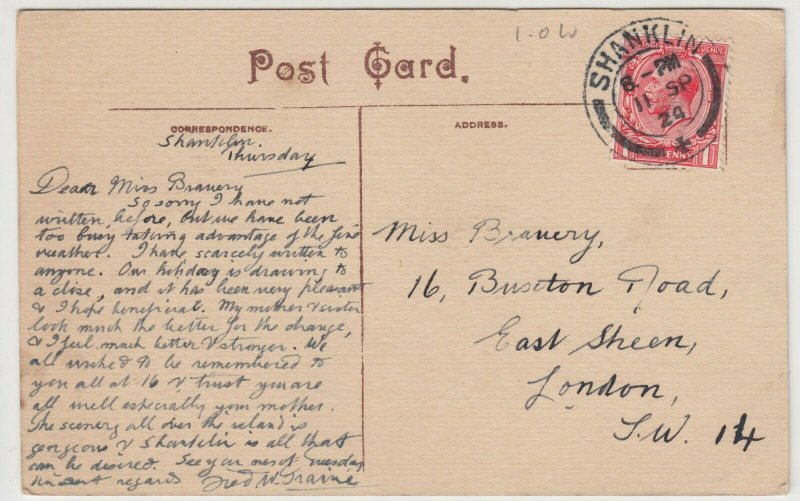 I.O.W
Post Card.
SHANKLIN
8 - PM
11 SP
24
REVENUE
PENNY
CORRESPONDENCE.
ADDRESS.
Shanklin.
Thursday
Dear Miss Bravery
So sorry I have not
written before, but we have been
too busy taking advantage of the fine
weather. I have scarcely written to
anyone. Our holiday is drawing to
a close, and it has been very pleasant
& I hope beneficial. My mother & sister
look much the better for the change,
& I feel much better & stronger. We
all wished to be remembered to
you all at 16 & trust you are
all well especially your mother.
The scenery all over the island is
gorgeous & Shanklin is all that
can be desired. See you Tuesday
regards Fred. W.
Miss Bravery,
16, Buxton Road,
East Sheen,
London,
S.W. 14